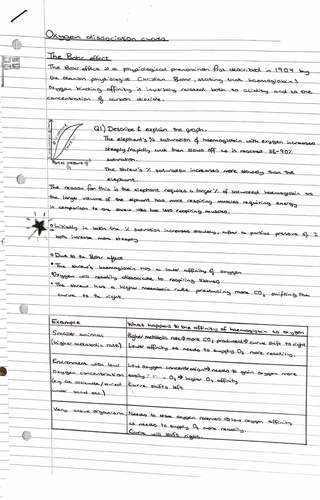 Oxygen dissociation curves
The Bohr effect
The Bohr effect is a physiological phenomenon first described in 1904 by
the danish physiologist Christian Bohr, stating that haemoglobin's
oxygen binding affinity is inversely related both to acidity and to the
concentration of carbon dioxide.
Q1) Describe & explain the graph.
The elephant's % saturation of haemoglobin with oxygen increases
steeply/rapidly and then slows off as it reaches 86-90%
saturation.
The shrew's % saturation increases more slowly than the
elephant.
The reason for this is the elephant requires a larger % of saturated haemoglobin as
the large volume of the elephant has more respiring muscles requiring energy
in comparison to the shrew who has less respiring muscles.
Initially in both the % saturation increases slowly, after a partial pressure of 2
both increase more steeply
Due to the Bohr effect
The shrew's haemoglobin has a lower affinity of oxygen
Oxygen will readily dissociate to respiring tissues
The shrew has a higher metabolic rate producing more CO2 shifting the
curve to the right.
Example
What happens to the affinity of haemoglobin to oxygen
Smaller animals
(higher metabolic rate)
Higher metabolic rate → more CO2 produced → curve shift to right
Lower affinity as needs to supply O2 more readily.
Environment with low
oxygen concentration
(e.g. at altitude/buried
under sand etc)
Low oxygen concentration → needs to gain oxygen more
easily ∴ → O2 → higher O2 affinity
Curve shifts left
Very active organisms
Needs to oxygen reserves → low oxygen affinity
as needs to supply O2 more readily.
Curve will shift right.